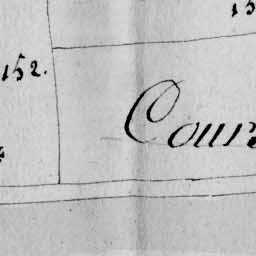 15
152.
Cour